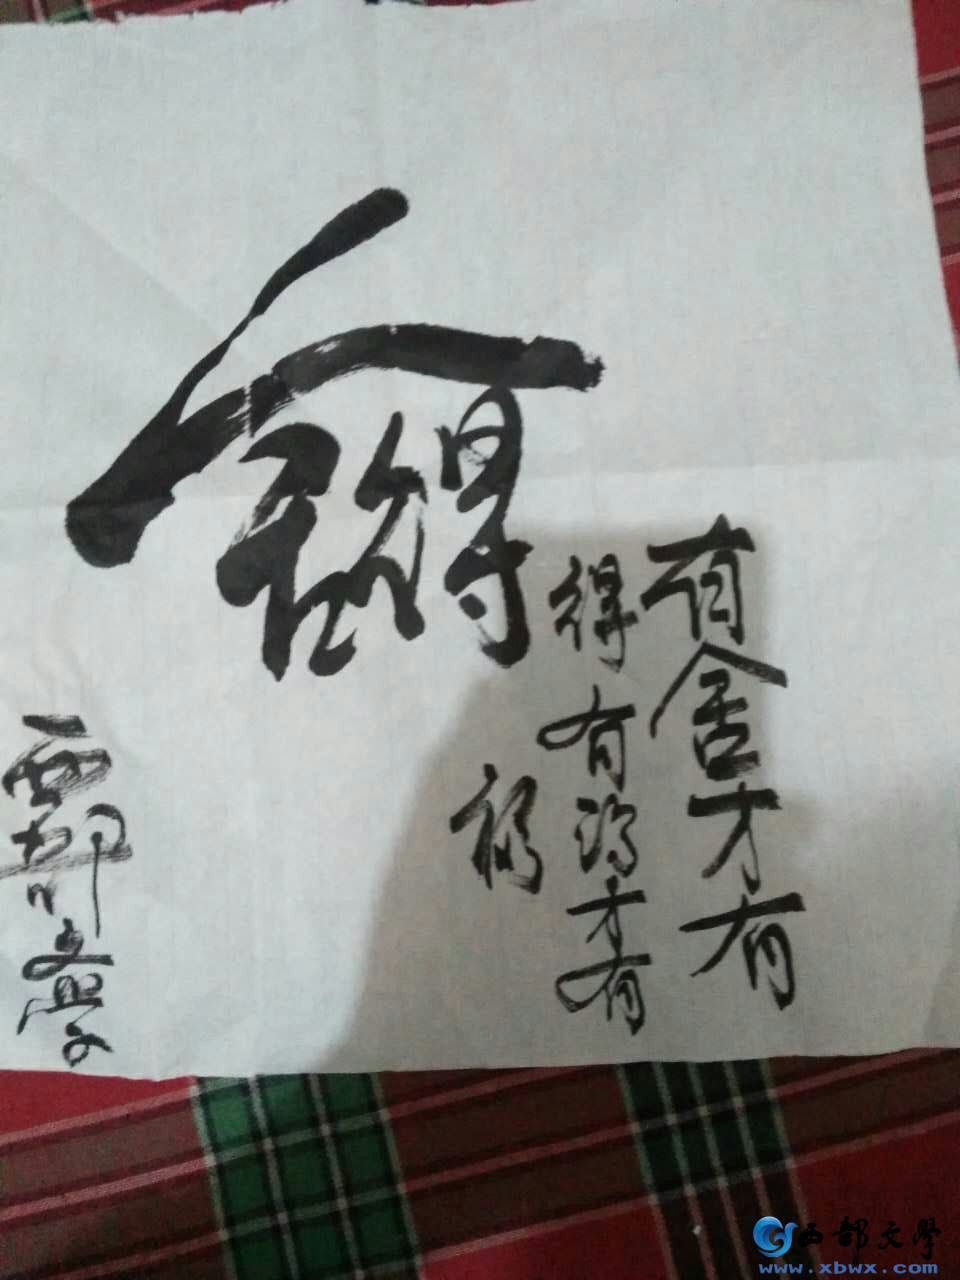 舍得
有舍才有
得有得才有
福
西部文学
西部文学
www.xbwx.com